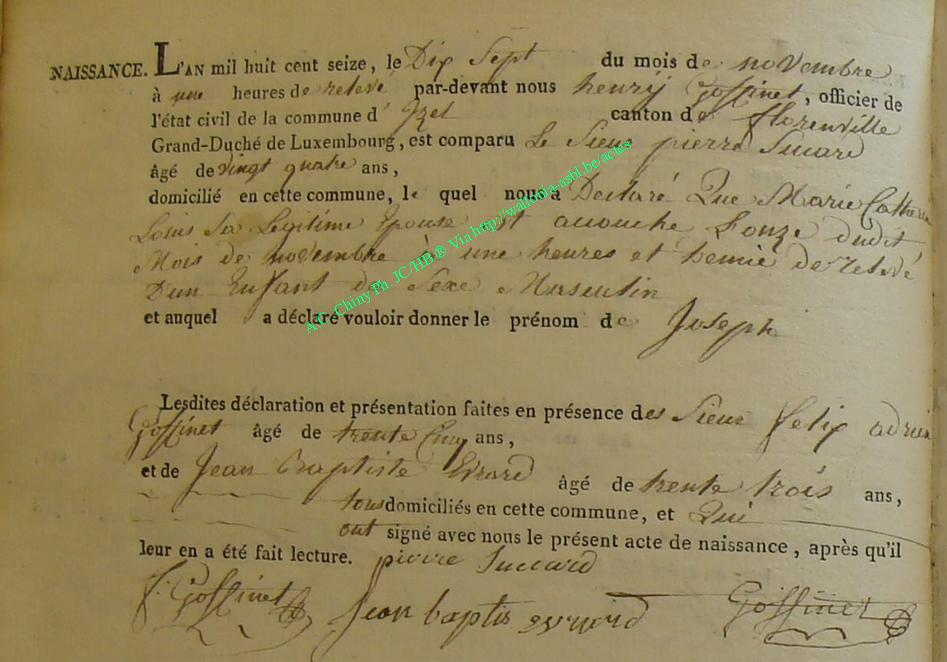 NAISSANCE. L'AN mil huit cent seize, le Dix Sept du mois de novembre
à une heures de relevé par-devant nous henry Goffinet, officier de
l'état civil de la commune d' Izel canton de florenville
Grand-Duché de Luxembourg, est comparu Le Sieur pierre Sucard
âgé de vingt quatre ans,
domicilié en cette commune, le quel nous a Declaré Que Marie Catherin
Louis Sa Legitime Epouse Est accouche L'onze dudit
Mois de novembre à une heures et demie de relevé
D'un Enfant de Sexe Masculin
et auquel a déclaré vouloir donner le prénom de Joseph
Lesdites déclaration et présentation faites en présence des Sieur felix adrien
Goffinet âgé de trente Cinq ans,
et de Jean Baptiste Evrard âgé de trente trois ans,
tous domiciliés en cette commune, et Qui
ont signé avec nous le présent acte de naissance, après qu'il
leur en a été fait lecture. pierre Succard
f. Goffinet Jean baptis evrard Goffinet
A.C. Chiny Ph. JC/HB ® Via http://wallonia-asbl.be/actes